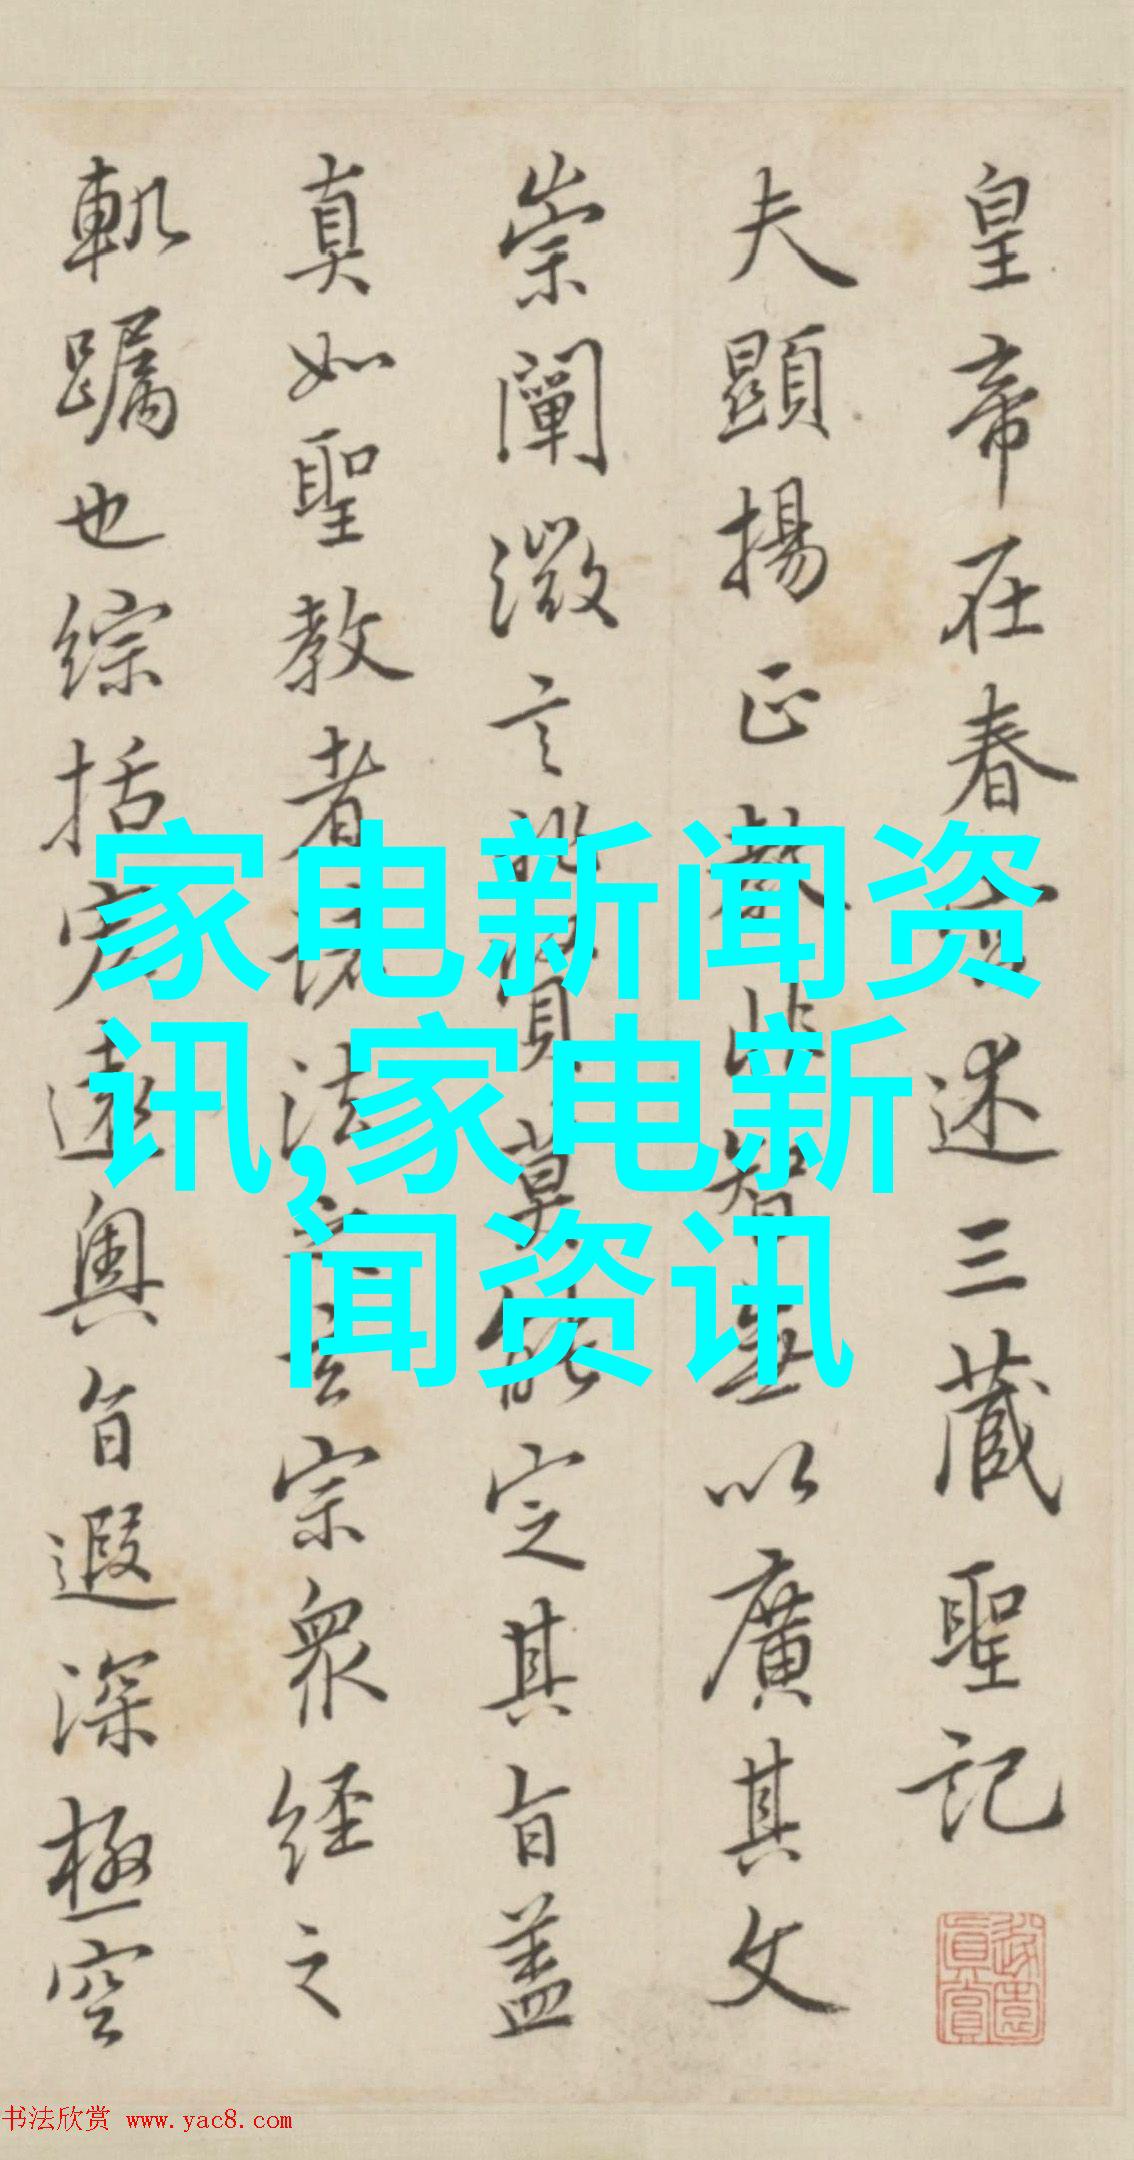 皇帝在春宮述三藏聖記
夫顯揚正教非智無以廣其文
崇闡微言非賢莫能定其旨蓋
真如聖教者諸法之玄宗眾經之
軌躅也綜括宏遠奧旨遐深極空
家电新闻资
讯,家电新
闻资讯
书法欣赏 www.yac8.com